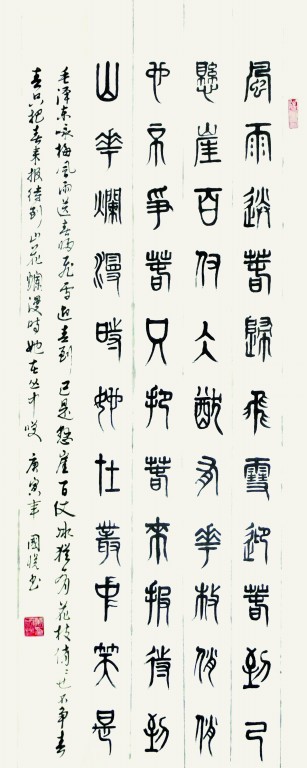 風雨送春歸飛雪迎春到已
懸崖百仗冰猶有華枝俏俏
也不爭春只把春來報待到
山華爛漫時她在叢中笑是
毛澤东咏梅風雨送春歸飛雪迎春到已是懸崖百仗冰猶有花枝俏〻也不争春
春只把春来报待到山花爛漫時她在丛中笑 庚寅年 國 书